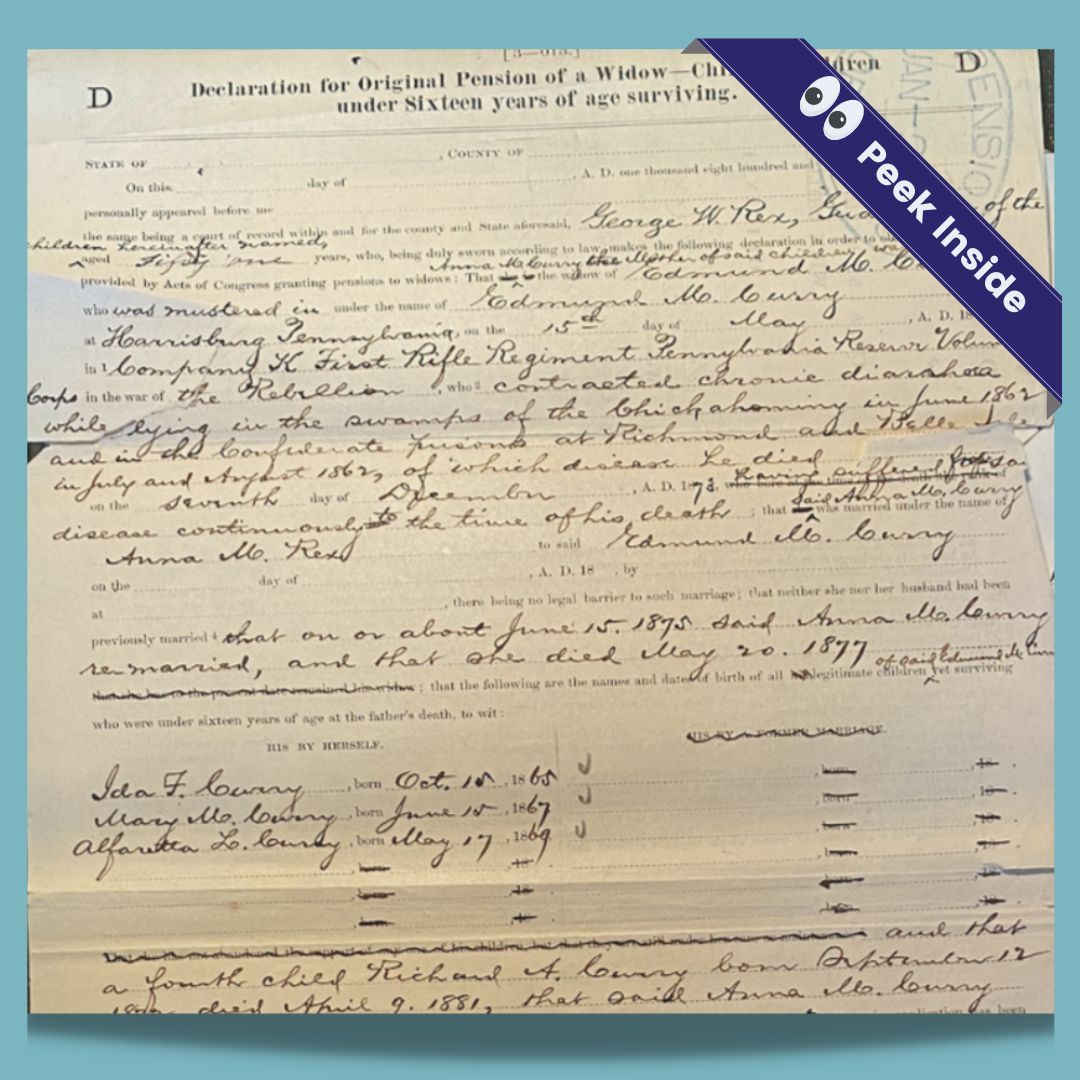 [3—015.]
D Declaration for Original Pension of a Widow—Chi dren D
under Sixteen years of age surviving.
PENSIO
JAN
Peek Inside
STATE OF , COUNTY OF
On this day of , A. D. one thousand eight hundred and
personally appeared before me
the same being a court of record within and for the county and State aforesaid, George W. Rex, of the
children hereinafter named,
aged fifty one years, who, being duly sworn according to law, makes the following declaration in order to
Anna M. Curry the Mother of said children
provided by Acts of Congress granting pensions to widows: That the widow of Edmund M. C
who was mustered in under the name of Edmund M. Curry
at Harrisburg Pennsylvania, on the 15th day of May , A. D. 18
in 1 Company K First Rifle Regiment Pennsylvania Reserve Volun
Corps in the war of the Rebellion , who 2 contracted chronic diarahoea
while lying in the swamps of the Chickahominy in June 1862
and in the Confederate prisons at Richmond and Belle Isle
in July and August 1862, of which disease he died
having suffered from said
on the seventh day of December , A. D. 1873,
said Anna M. Curry
disease continuously to the time of his death ; that was married under the name of
Anna M. Rex to said Edmund M. Curry
on the day of , A. D. 18 , by
at , there being no legal barrier to such marriage; that neither she nor her husband had been
previously married 4 that on or about June 15. 1875 said Anna M. Curry
re-married, and that she died May 20. 1877 of said Edmund M. Curry
; that the following are the names and dates of birth of all legitimate children yet surviving
who were under sixteen years of age at the father's death, to wit:
HIS BY HERSELF. HIS BY A FORMER MARRIAGE.
Ida F. Curry , born Oct. 15 , 1865 born , 18 .
Mary M. Curry , born June 15 , 1867 born , 18 .
Alfaretta L. Curry , born May 17 , 1869 born , 18 .
born 18 born 18
born 18 born 18
born 18 born 18
and that
a fourth child Richard A. Curry born September 12
died April 9. 1881, that said Anna M. Curry